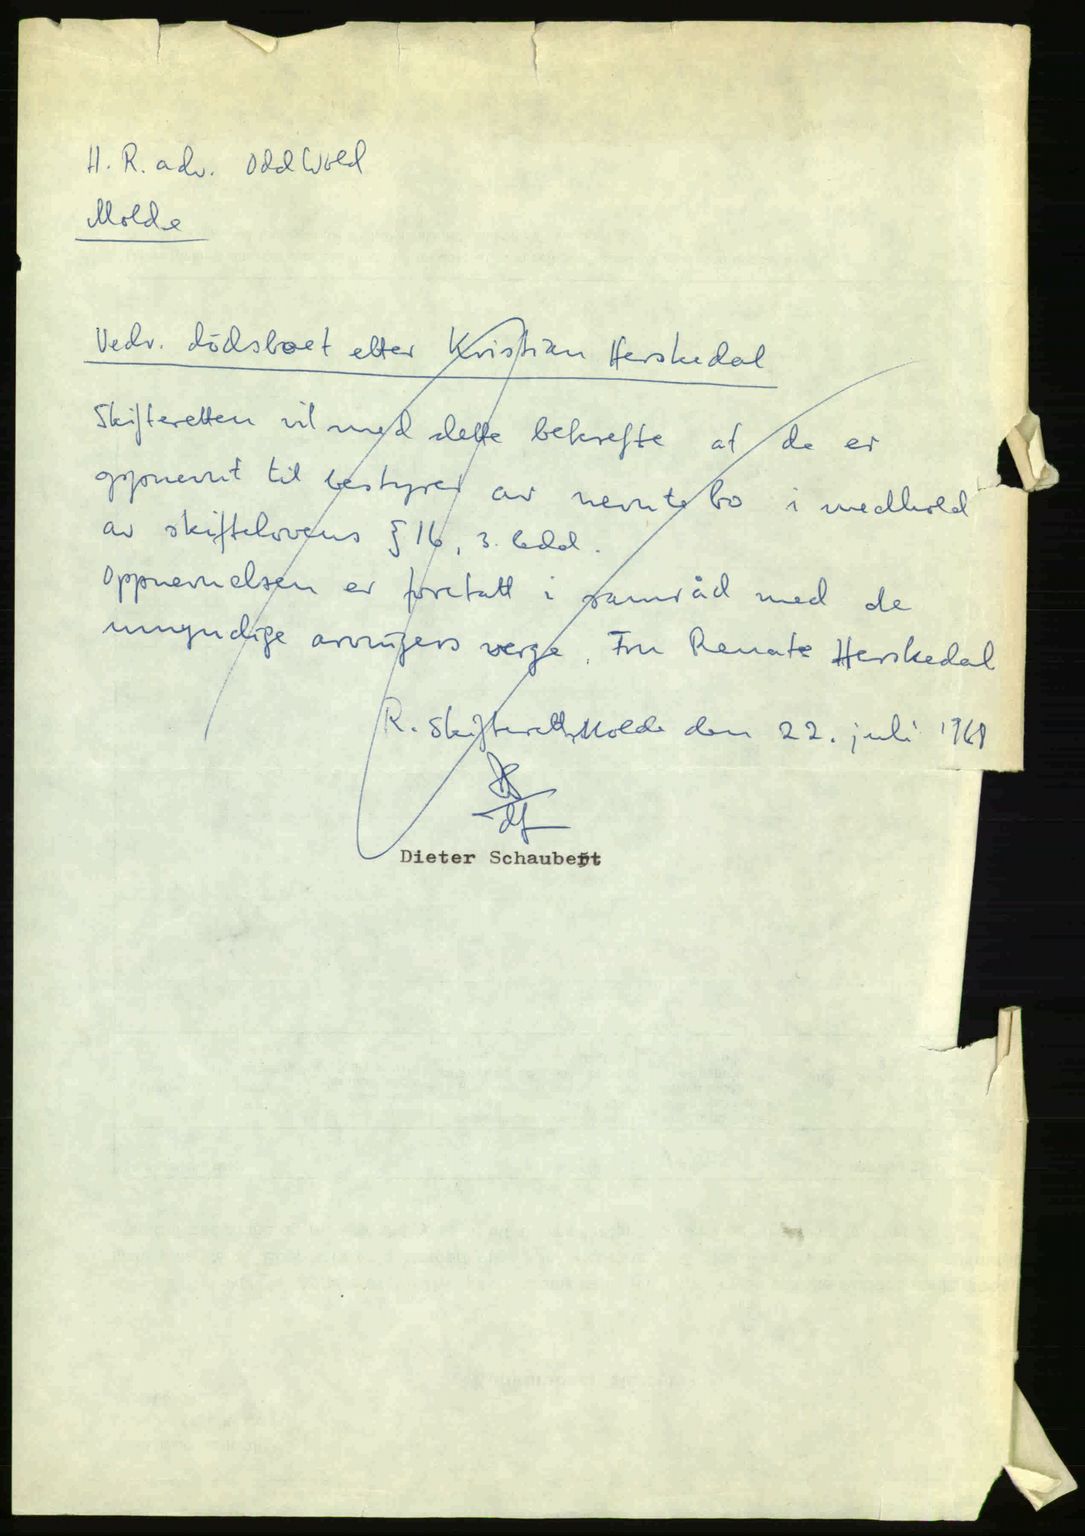 H. R. adv. Odd Wold
Molde
Vedr. dödsboet etter Kristian Herskedal
Skifteretten vil med dette bekrefte at de er
oppnevnt til bestyrer av nevnte bo i medhold
av skiftelovens § 16, 3. ledd.
Oppnevnelsen er foretatt i samråd med de
umyndige arvingers verge. Fru Renate Herskedal
R. Skifterett, Molde den 22. juli 1968
Dieter Schaubert